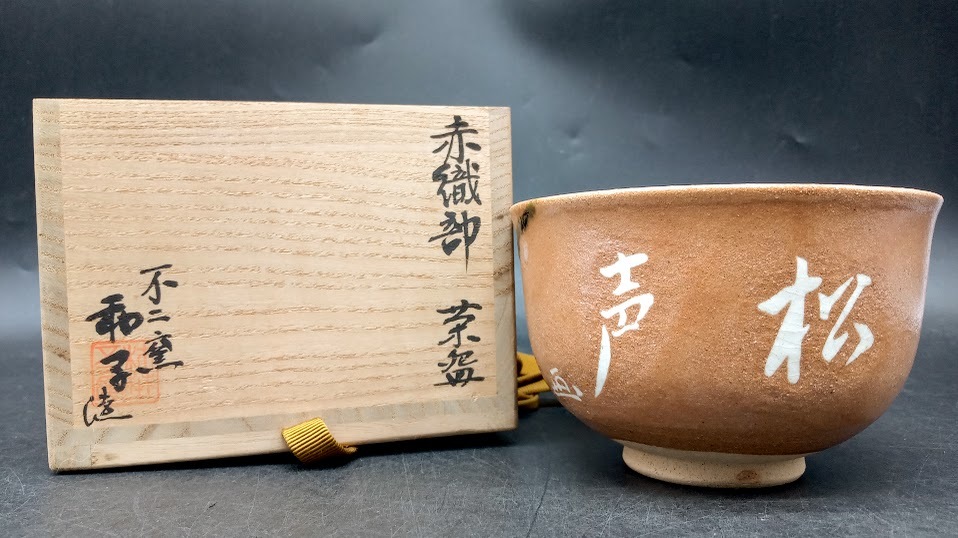 赤織部 茶盌
不二窯
和子造
松
声